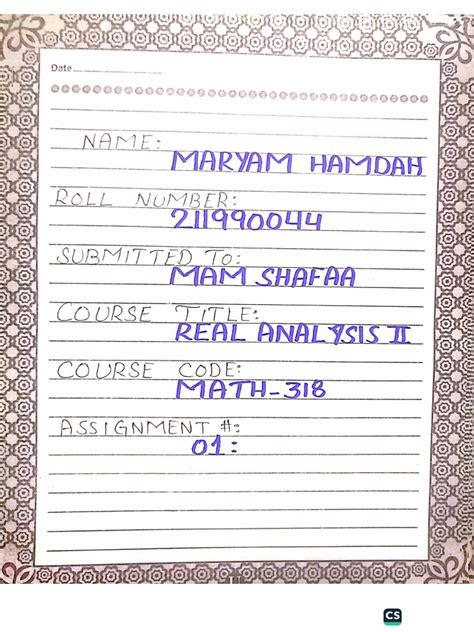 Date
NAME:
MARYAM HAMDAH
ROLL NUMBER:
211990044
SUBMITTED TO:
MAM SHAFAA
COURSE TITLE:
REAL ANALYSIS II
COURSE CODE:
MATH-318
ASSIGNMENT #:
01:
CS